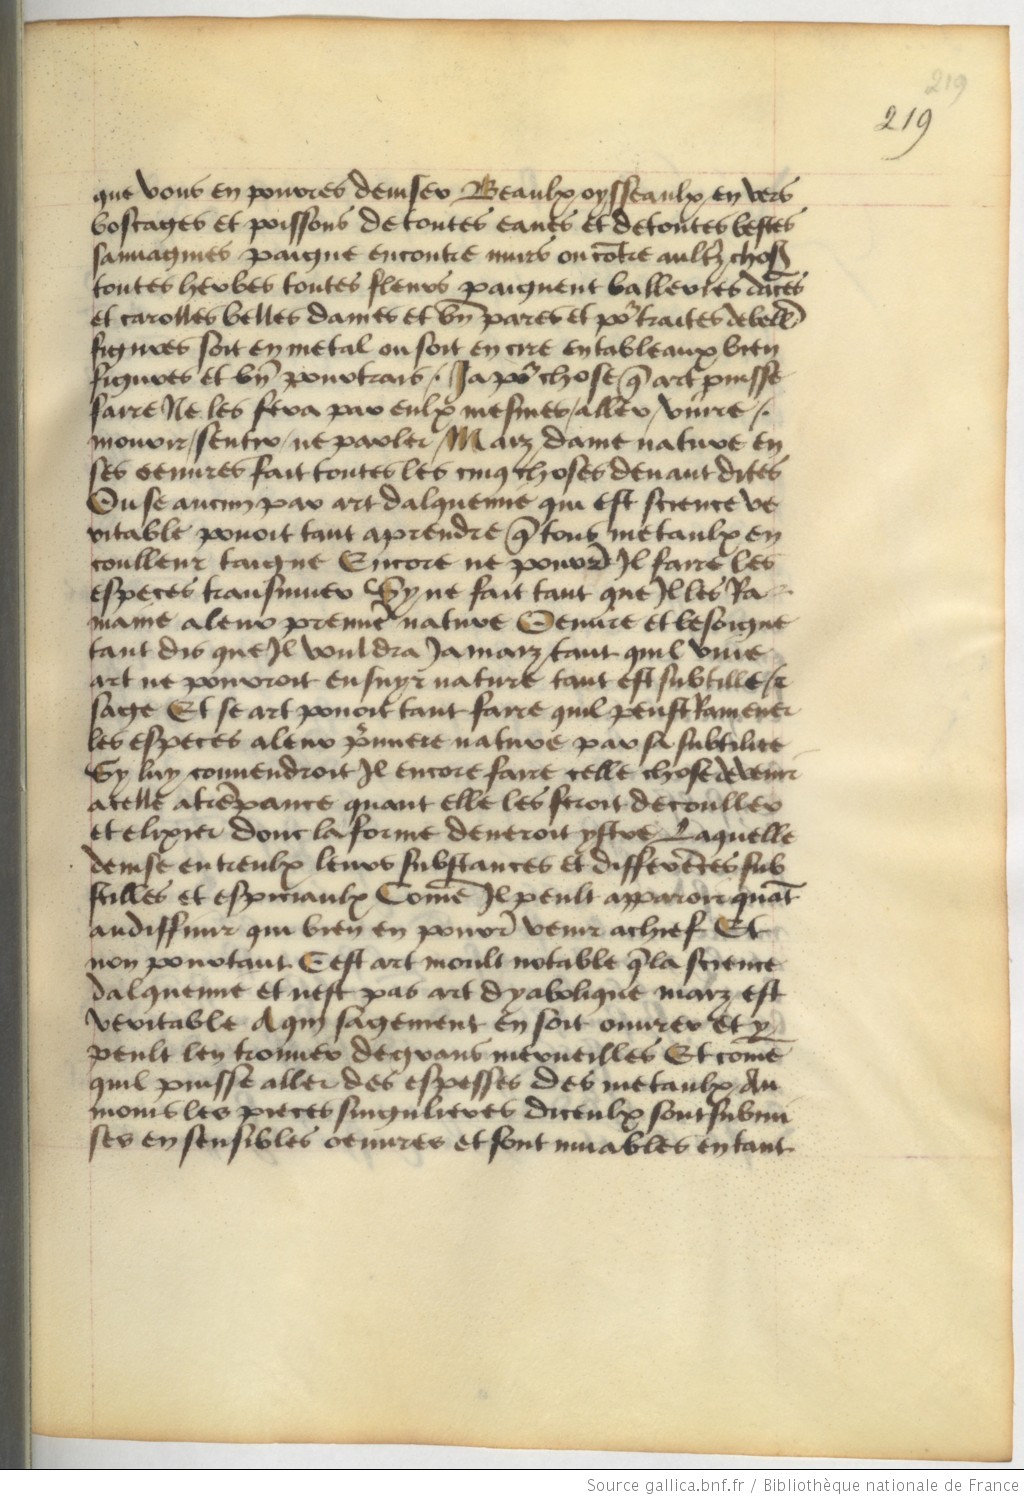 219
219
que vous en pouures deuiser Beaulx oysseaulx en vers
boscages et poissons de toutes eaues et de toutes bestes
sauuagines paigne encontre murs ou cōtre aultz choß
toutes herbes toutes fleurs paignent balleries dāces
et carolles belles dames et bñ pares et po͛traites de bell̄
figures soit en metal ou soit en cire en tableaux bien
figures et bñ pourtrais /. Ja po͛ chose q̄ art puisse
farre Ne les fera par eulx mesmes / aller / viure /.
mouuir / sentir / ne parler / Marz dame nature en
ses oeuures fait toutes les cinq choses deuant dites
Ou se aucun par art dalquemie qui est science ve
ritable pouoit tant aprendre q̄ tous metaulx en
coulleur taigne Encore ne pouor̄ Il farre les
especes transmuer Sy ne fait tant que Il les Ra
maine a leur premie͛ nature Oeuure et besoigne
tant dis que Il vouldra Jamarz / tant quil viue
art ne pouroit ensuyr nature tant est subtille /
sage Et se art pouoit tant farre quil peust Ramener
les especes a leur p͛miere nature par sa subtilite
Sy luy conuendroit Il encore farre celle chose deuenir
a celle atrēpance quant elle les feroit de coulleur
et elixier donc la forme deueroit ystre Laquelle
deuise entreulx leurs substances et differēces sub
stilles et espiciaulx Come͂ Il peult apparoir quāt
au diffinir qui bien en pouor̄ venir a chief Et
non pourtant Cest art moult notable q̄ la science
dalquemie et nest pas art dyabolique marz est
veritable A qui sagement en soit ouurer Et y
peult len trouuer de grans merueilles Et come͂
quil puisse aller des espesses des metaulx Au
moins les pieces singulieres diceulx sont submi
ses en sensibles oeuures et sont muables en tant
Source gallica.bnf.fr / Bibliothèque nationale de France